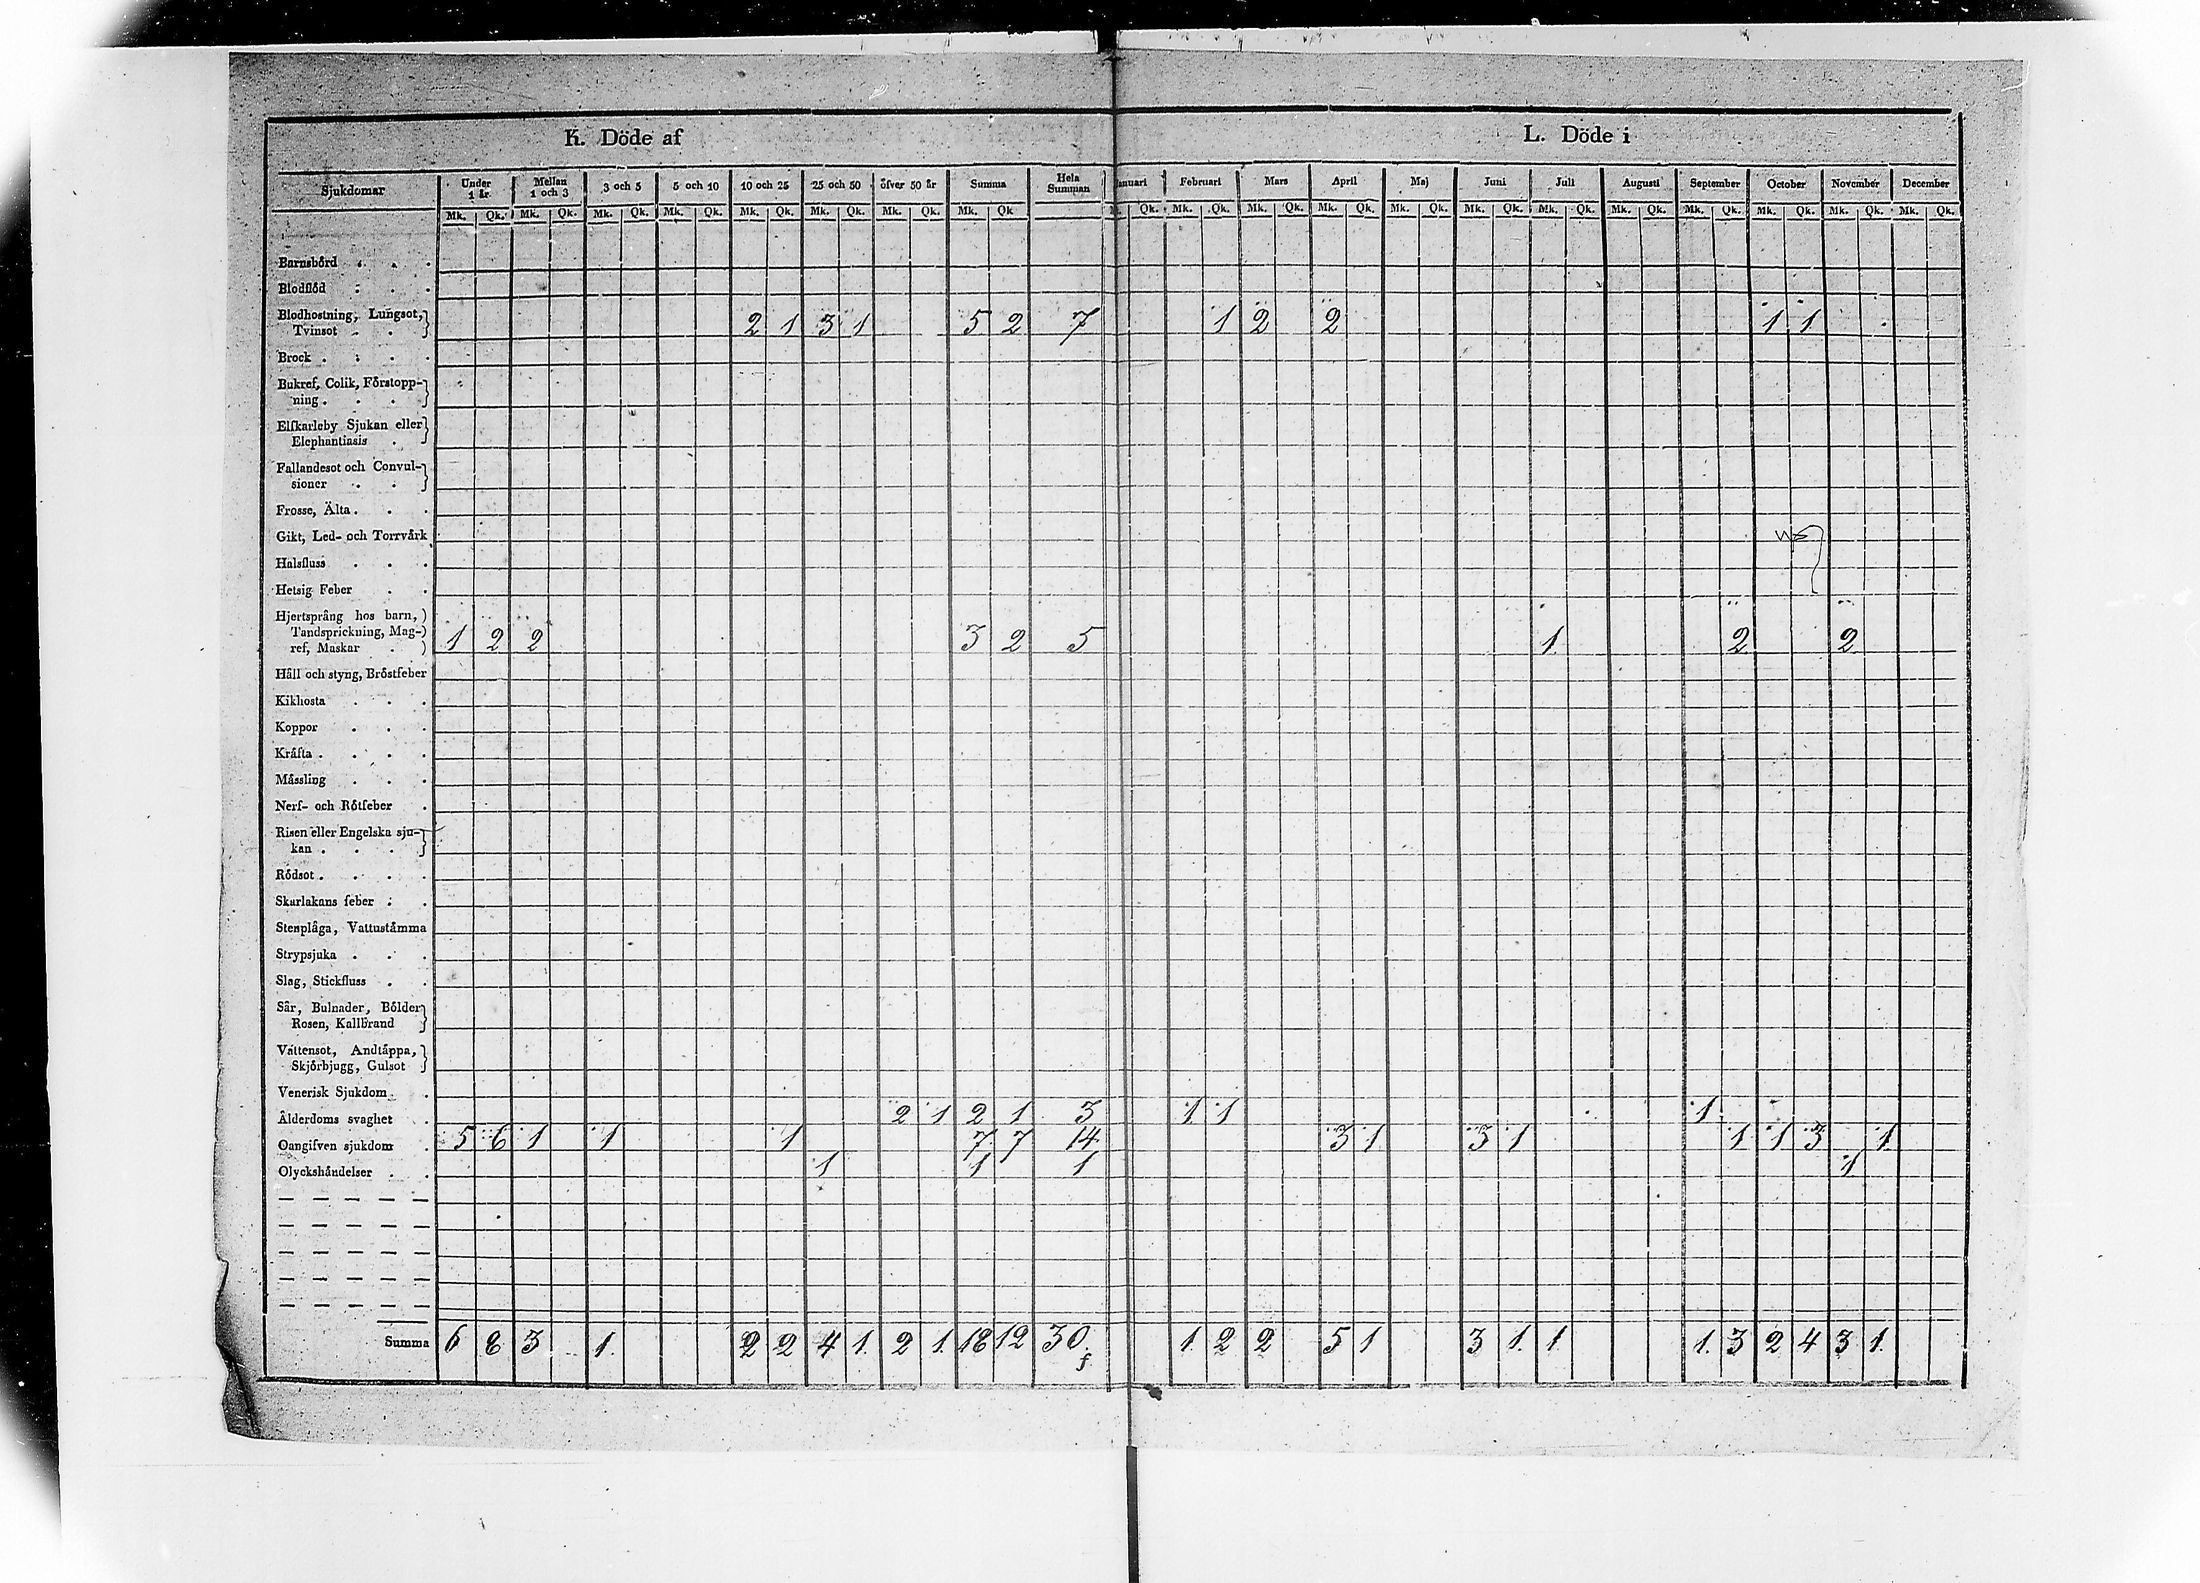 K. Döde af L. Döde i
Sjukdomar Under 1 år Mellan 1 och 3 3 och 5 5 och 10 10 och 25 25 och 50 öfver 50 år Summa Hela Summan anuari Februari Mars April Maj Juni Juli Augusti September October November December
Mk. Qk. Mk. Qk. Mk. Qk. Mk. Qk. Mk. Qk. Mk. Qk. Mk. Qk. Mk. Qk Qk. Mk. Qk. Mk. Qk. Mk. Qk. Mk. Qk. Mk. Qk. Mk. Qk. Mk. Qk. Mk. Qk. Mk. Qk. Mk. Qk. Mk. Qk.
Barnsbörd . . .
Blodflöd . . .
Blodhostning, Lungsot,
Tvinsot . . 2 1 3 1 5 2 7 1 2 2 1 1
Brock . . . .
Bukref, Colik, Förstopp-
ning . . .
Elfkarleby Sjukan eller
Elephantiasis .
Fallandesot och Convul-
sioner . .
Frosse, Älta . . .
Gikt, Led- och Torrvärk
Halsfluss . . .
Hetsig Feber . .
Hjertsprång hos barn,
Tandsprickning, Mag-
ref, Maskar . 1 2 2 3 2 5 1 2 2
Håll och styng, Bröstfeber
Kikhosta . . .
Koppor . . .
Kräfta . . . .
Mässling . . .
Nerf- och Rötfeber .
Risen eller Engelska sju-
kan . . .
Rödsot . . . .
Skarlakans feber . .
Stenplåga, Vattustämma
Strypsjuka . . .
Slag, Stickfluss . .
Sår, Bulnader, Bölder
Rosen, Kallbrand
Vattensot, Andtäppa,
Skjörbjugg, Gulsot
Venerisk Sjukdom . .
Ålderdoms svaghet . 2 1 2 1 3 1 1 1
Oangifven sjukdom . 5 6 1 1 1 7 7 14 3 1 3 1 1 1 3 1
Olyckshändelser . . 1 1 1 1
Summa 6 8 3 1. 2 2 4 1. 2 1. 18 12 30. 1. 2 2 5 1 3 1. 1 1. 3 2 4 3 1.